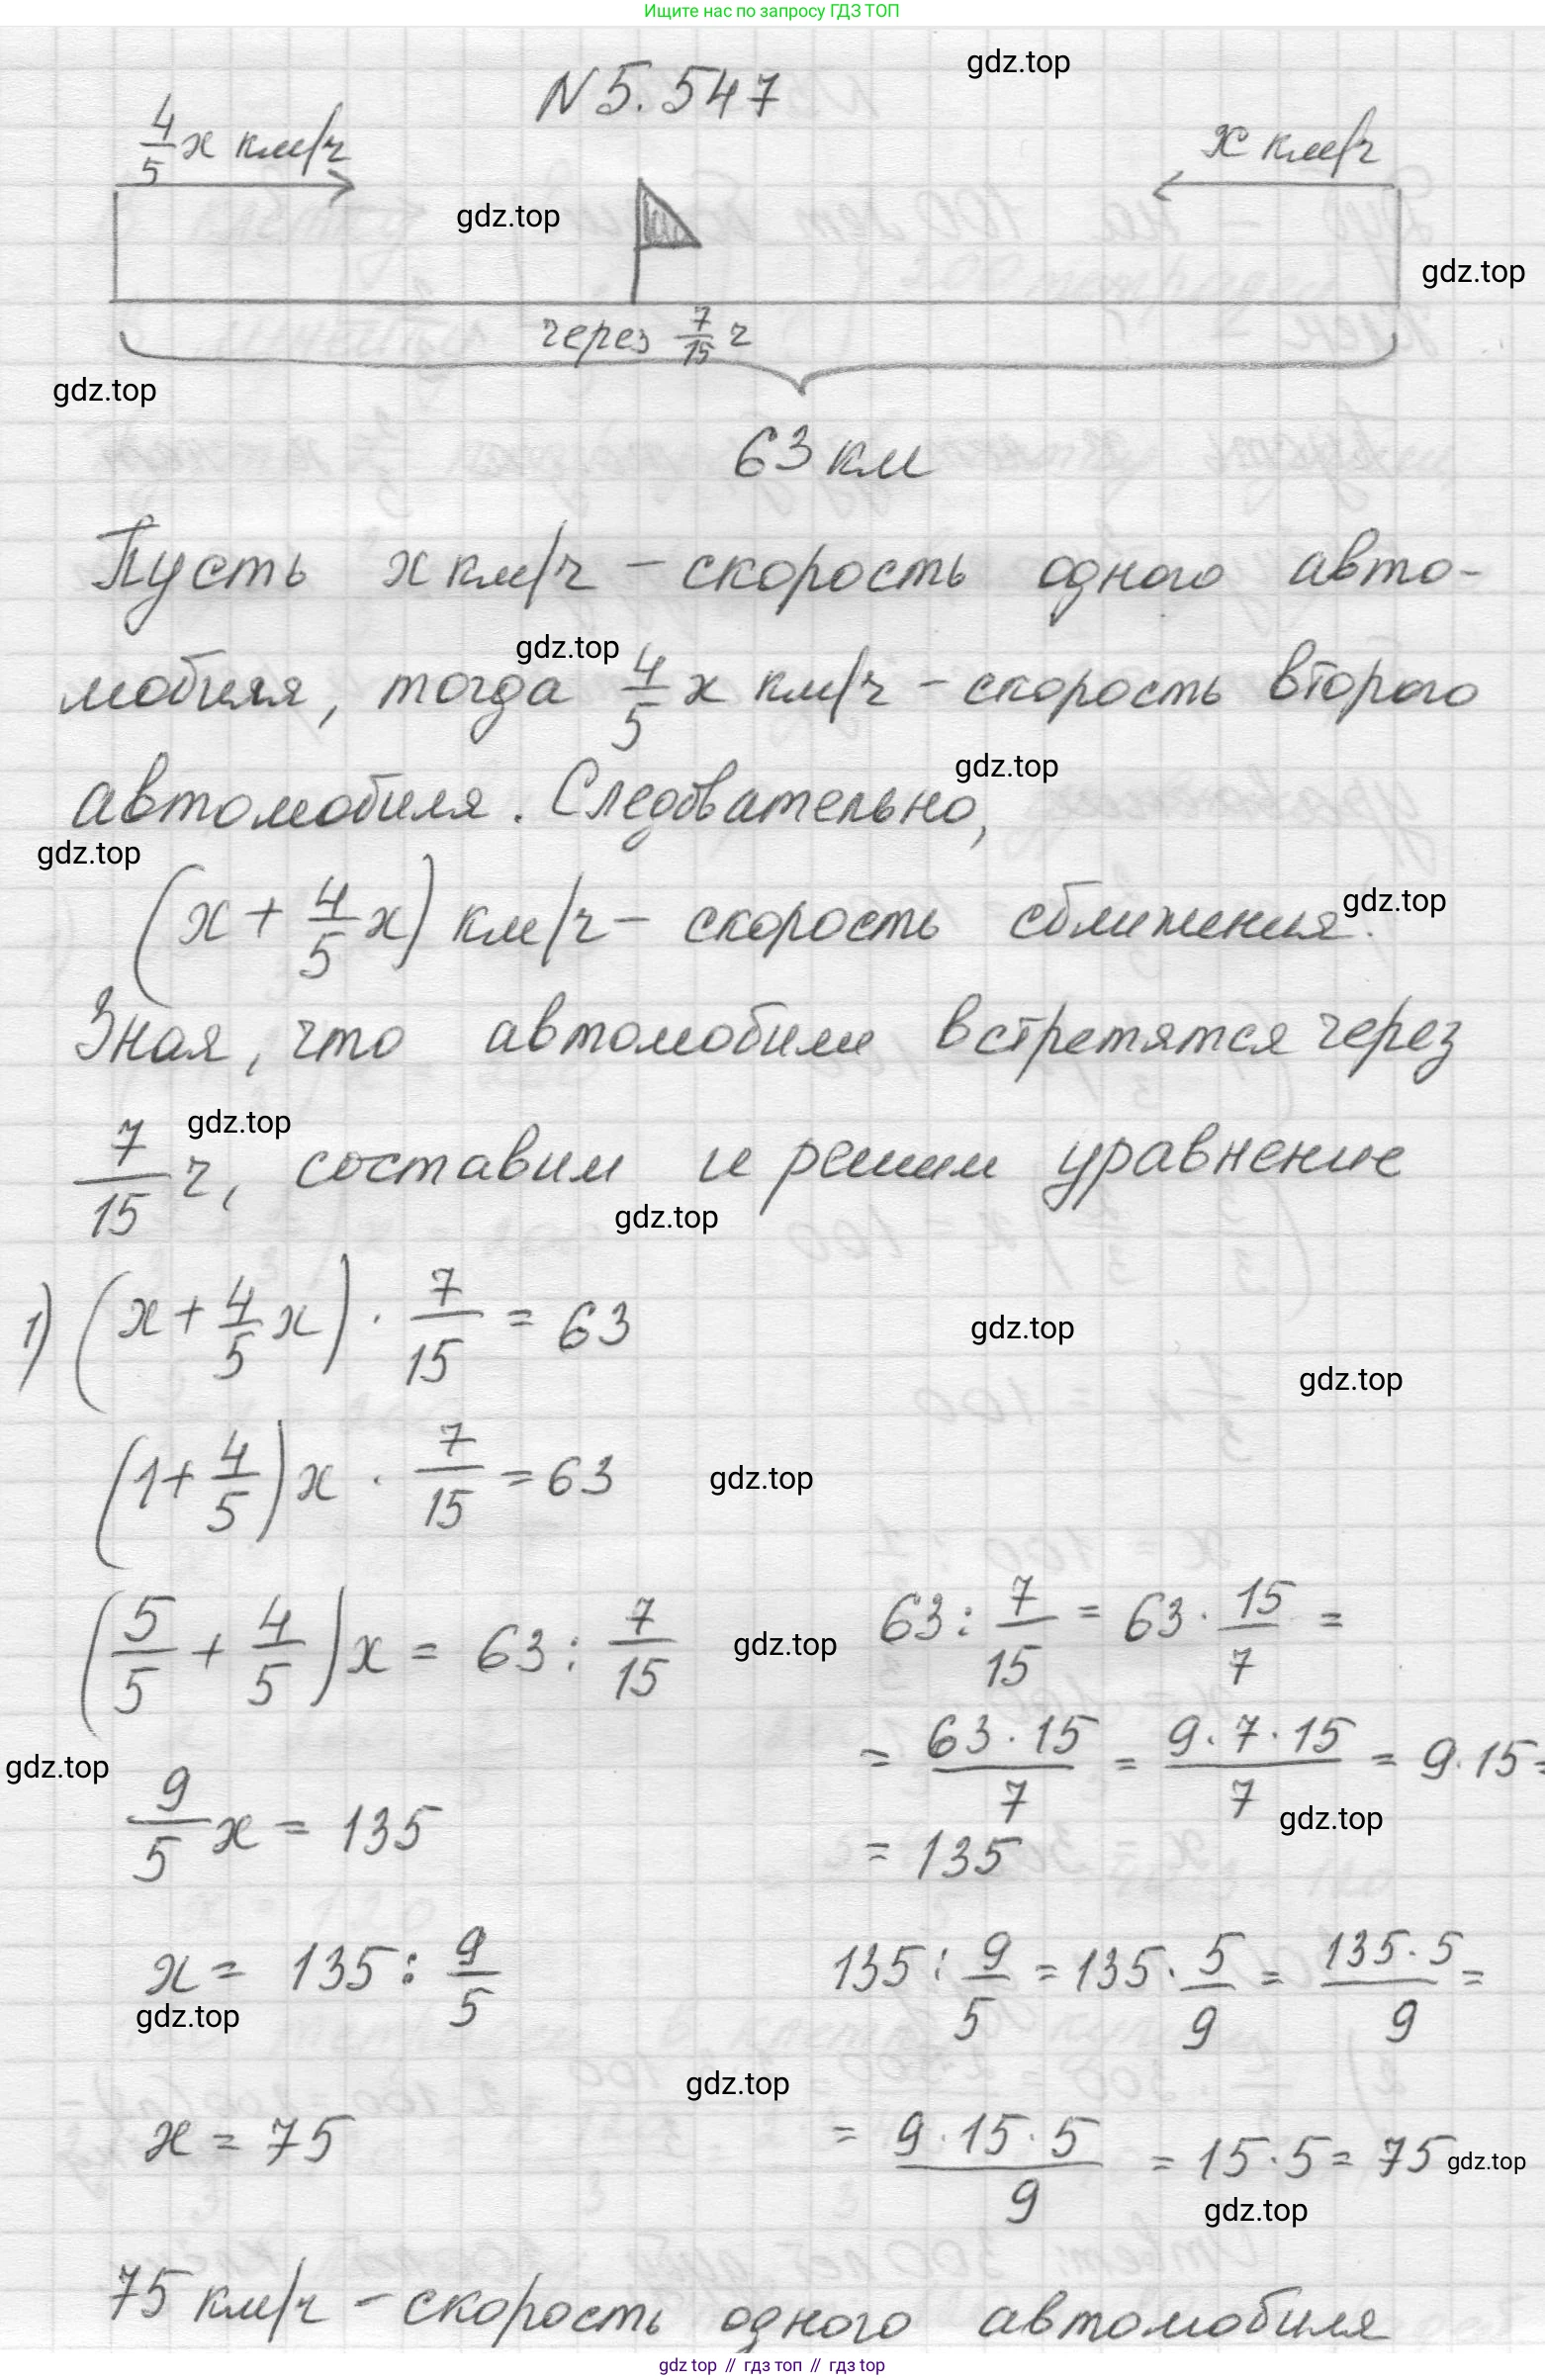 Ищите нас по запросу ГДЗ ТОП
gdz.top
N 5.547
4/5 x км/ч
x км/ч
gdz.top
gdz.top
через 7/15 ч
gdz.top
63 км
Пусть x км/ч - скорость одного авто-
gdz.top
мобиля, тогда 4/5 x км/ч - скорость второго
gdz.top
автомобиля. Следовательно,
gdz.top
gdz.top
(x + 4/5 x) км/ч - скорость сближения.
Зная, что автомобили встретятся через
gdz.top
7/15 ч, составим и решим уравнение
gdz.top
1) (x + 4/5 x) · 7/15 = 63
gdz.top
gdz.top
(1 + 4/5) x · 7/15 = 63
gdz.top
(5/5 + 4/5) x = 63 : 7/15
gdz.top
63 : 7/15 = 63 · 15/7 =
= 63 · 15/7 = 9 · 7 · 15/7 = 9 · 15 =
gdz.top
gdz.top
9/5 x = 135
= 135
x = 135 : 9/5
135 : 9/5 = 135 · 5/9 = 135 · 5/9 =
gdz.top
gdz.top
x = 75
= 9 · 15 · 5/9 = 15 · 5 = 75
gdz.top
gdz.top
75 км/ч - скорость одного автомобиля
gdz top // гдз топ // гдз top